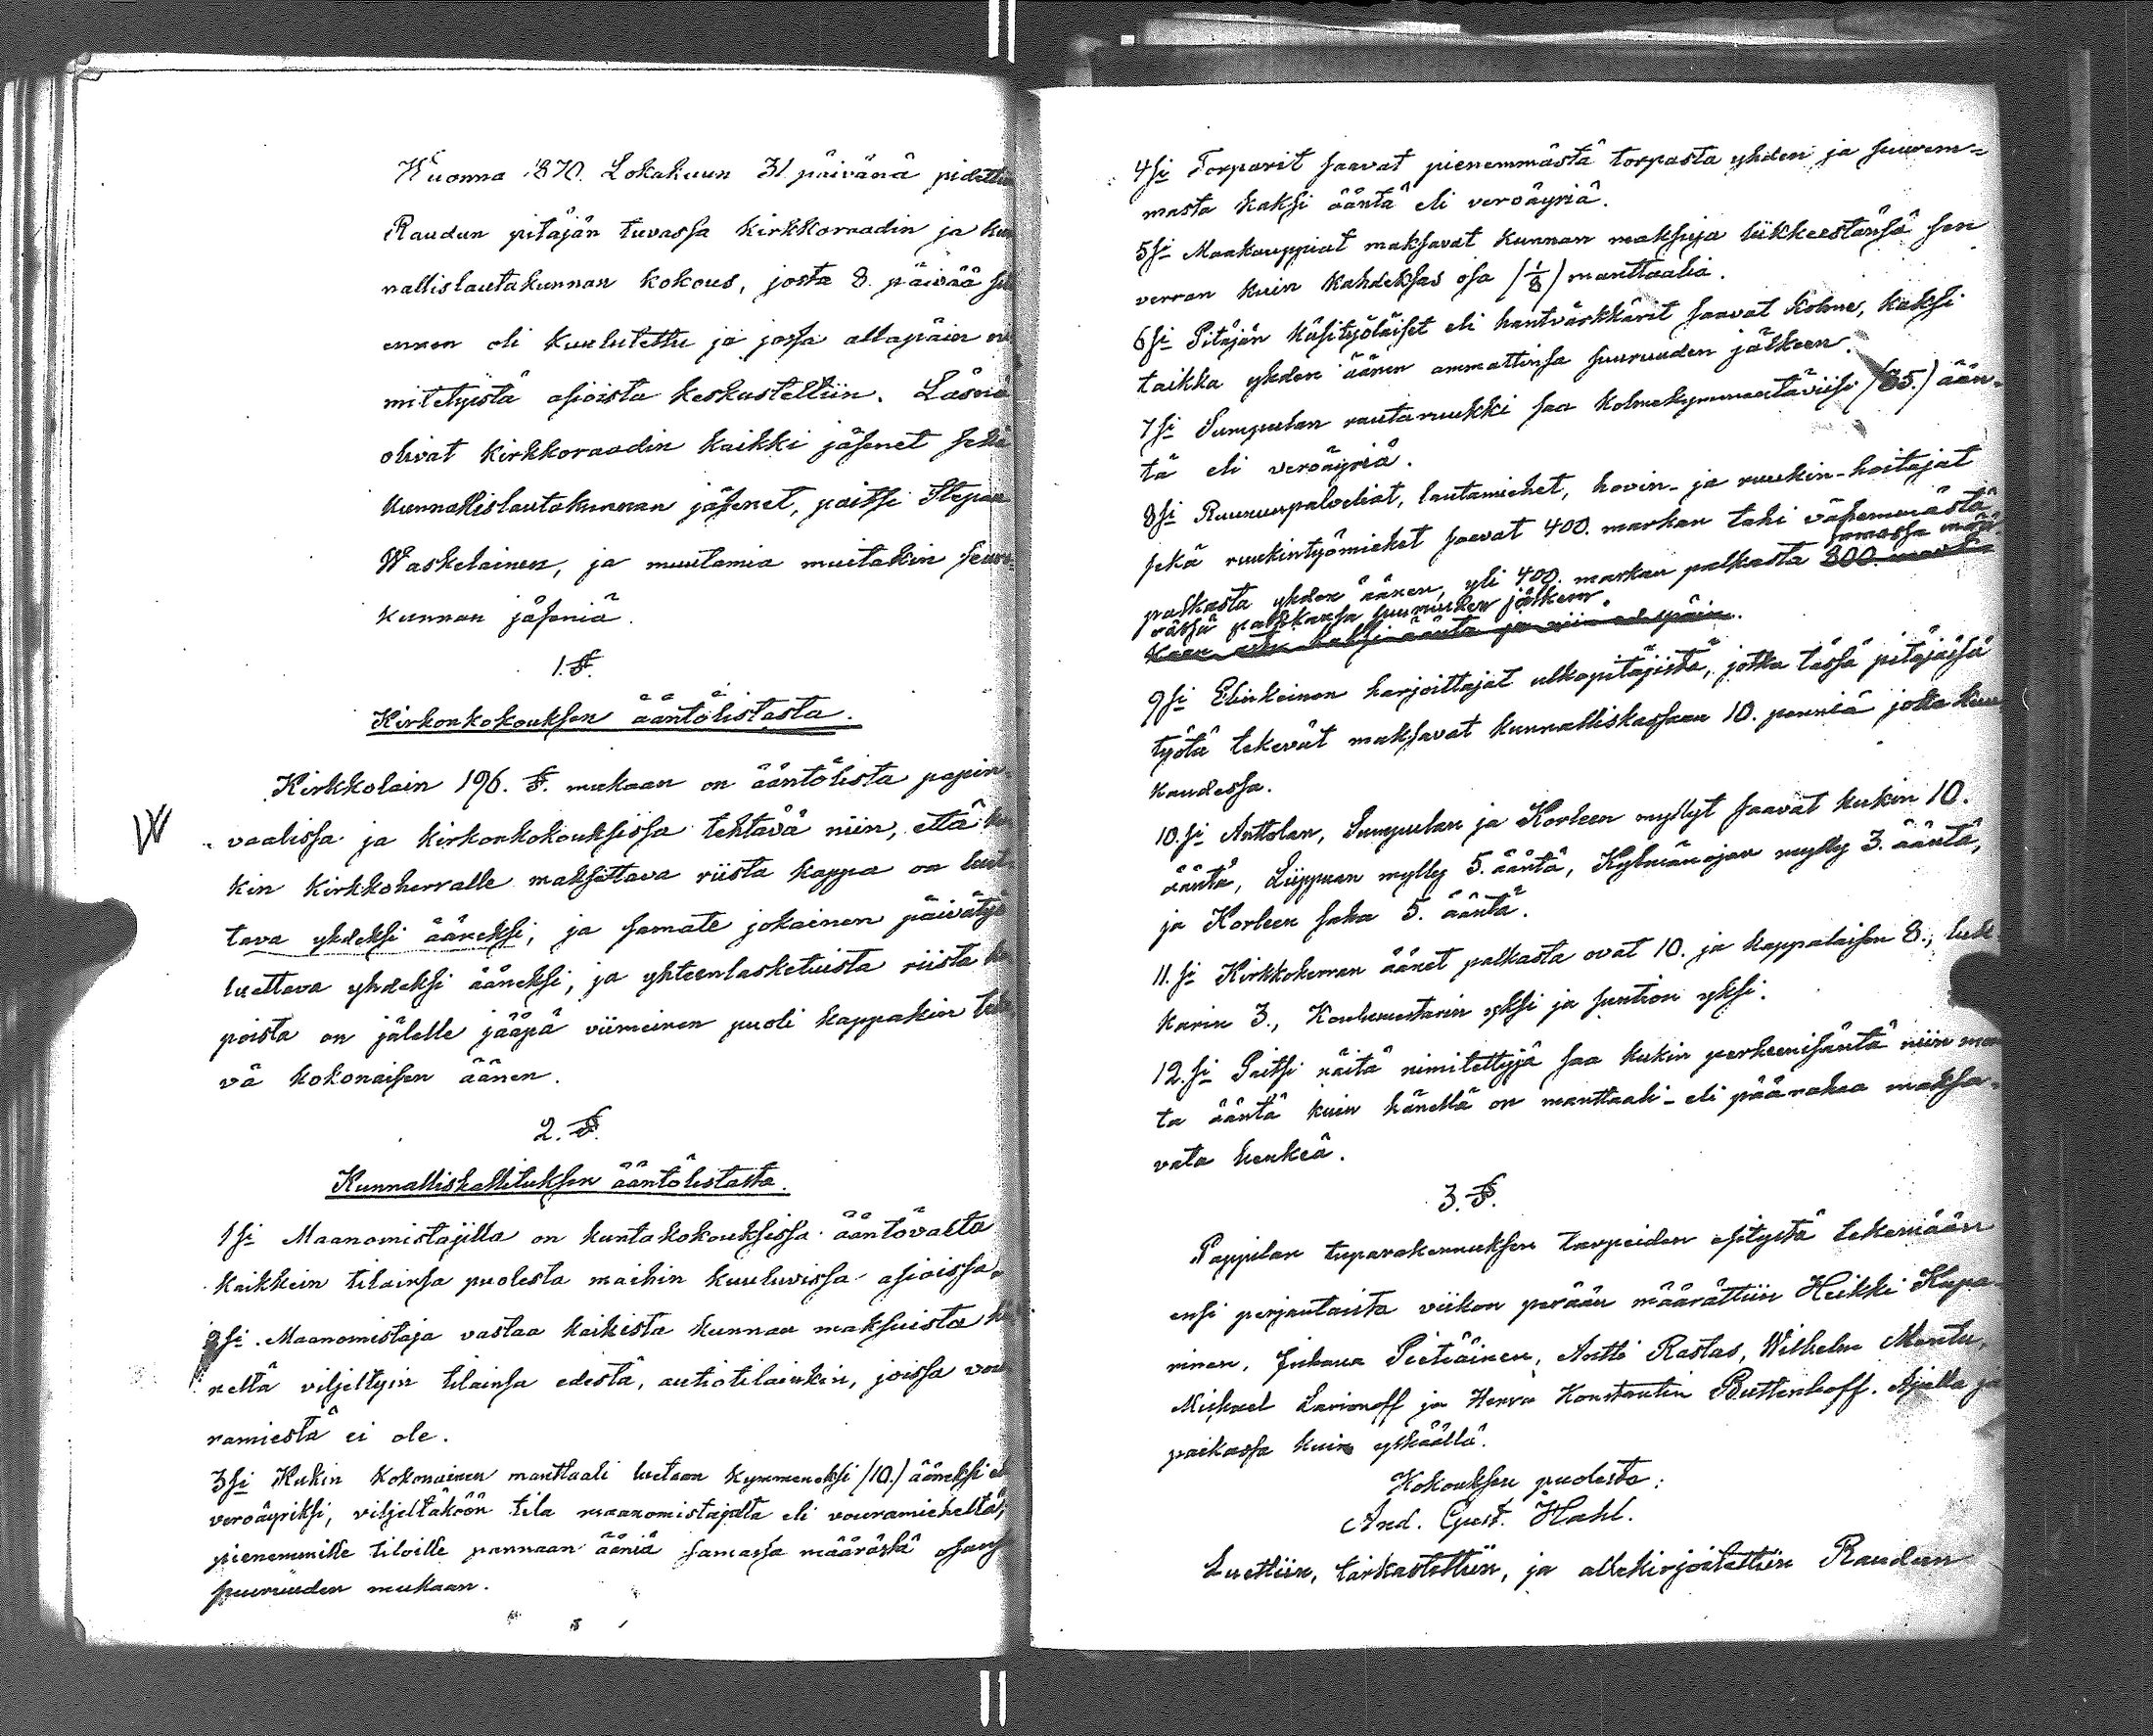 Wuonna 1870. Lokakuun 31 päivänä pidettiin
Raudun pitäjän tuvassa kirkkoraadin ja kun
nallislautakunnan kokous, josta 8. päivää sitä
ennen oli kuulutettu ja jossa allapäin ni
mitetyistä asioista keskusteltiin. Läsnä
olivat kirkkoraadin kaikki jäsenet sekä
kunnallislautakunnan jäsenet, paitsi Stepan
Waskelainen, ja muutamia muitakin seura-
kunnan jäseniä.
1. §.
Kirkonkokouksen ääntölistasta.
Kirkkolain 196. §. mukaan on ääntölista papin-
vaalissa ja kirkonkokouksissa tehtävä niin, että ku
kin kirkkoherralle maksettava riista kappa on luet-
tava yhdeksi ääneksi, ja samate jokainen päivätyö
luettava yhdeksi ääneksi, ja yhteenlasketuista riista ka
poista on jälelle jääpä viimeinen puoli kappakin teke
vä kokonaisen äänen.
2. §.
Kunnallishallituksen ääntölistasta.
1si Maanomistajilla on kuntakokouksissa ääntövalta
kaikkein tilainsa puolesta maihin kuuluvissa asioissa.
2si Maanomistaja vastaa kaikista kunnan maksuista
neltä viljeltyin tilainsa edestä, autiotilainkin, joissa vou
ramiestä ei ole.
3si Kukin kokonainen manttaali luetaan kymmeneksi /10./ ääneksi eli
veroäyriksi, viljeltäköön tila maanomistajalta eli vouramieheltä;
pienemmille tiloille pannaan ääniä samassa määrässä osansa
suuruuden mukaan.
4si Torparit saavat pienemmästä torpasta yhden ja suurem-
masta kaksi ääntä eli veroäyriä.
5si Maakauppiat maksavat kunnan maksuja liikkeestänsä sen
verran kuin kahdeksas osa /1/8/ manttaalia.
6si Pitäjän käsityöläiset eli hantvärkkärit saavat kolme, kaksi
taikka yhden äänen ammattinsa suuruuden jälkeen.
7si Sumpulan rautaruukki saa kolmekymmentäviisi /35./ ään-
tä eli veroäyriä.
8si Ruununpalveliat, lautamiehet, hovin- ja ruukin-hoitajat
sekä ruukintyömiehet saavat 400. markan tahi vähemmästä
palkasta yhden äänen, yli 400. markan palkasta 800 mark samassa mää
rässä palkkansa suuruuden jälkeen.
kaan asti kaksi ääntä ja niin edespäin.
9si Elinkeinon harjoittajat ulkopitäjistä, jotka tässä pitäjäsä
työtä tekevät maksavat kunnalliskassaan 10. penniä joka kuu
kaudessa.
10.si Anttolan, Sumpulan ja Korleen myllyt saavat kukin 10.
ääntä, Liippuan mylly 5. ääntä, Kylmänojan mylly 3. ääntä,
ja Korleen saha 5. ääntä.
11.si Kirkkoherran äänet palkasta ovat 10. ja kappalaisen 8., luk
karin 3., Koulumestarin yksi ja suntion yksi.
12.si Paitsi näitä nimitettyjä saa kukin perheenisäntä niin mon
ta ääntä kuin hänellä on manttaali- eli päärahaa maksa-
vata henkeä.
3. §.
Pappilan tuparakennuksen tarpeiden esitystä tekemään
ensi perjantaista viikon perään määrättiin Heikki Kapa-
ninen, Juhana Pietiäinen, Antti Rastas, Wilhelm Montu,
Mickael Larionoff ja Herra Konstantin Buttenhoff. Ajalla ja
paikassa kuin ylhäällä.
Kokouksen puolesta:
And. Gust. Hahl.
Luettiin, tarkastettiin, ja allekirjoitettiin Raudun